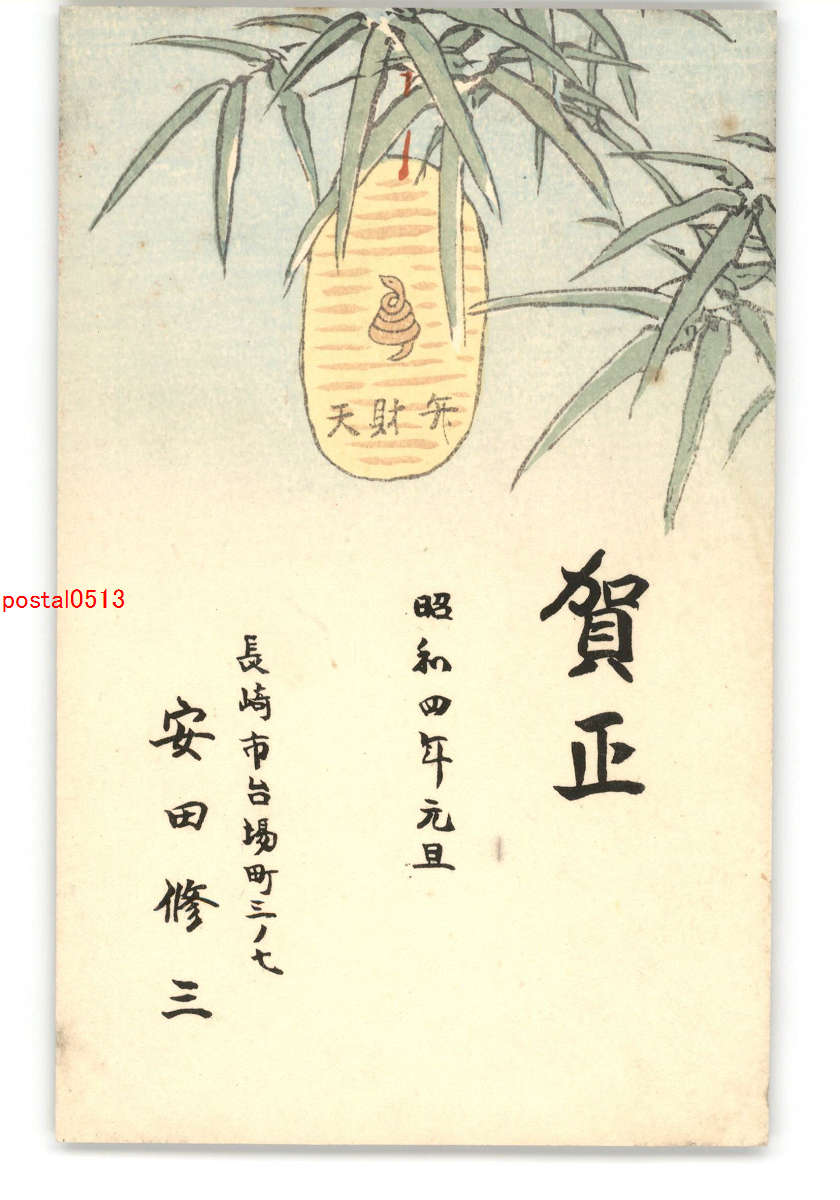 弁財天
賀正
昭和四年元旦
長崎市台場町三ノ七
安田修三
postal0513